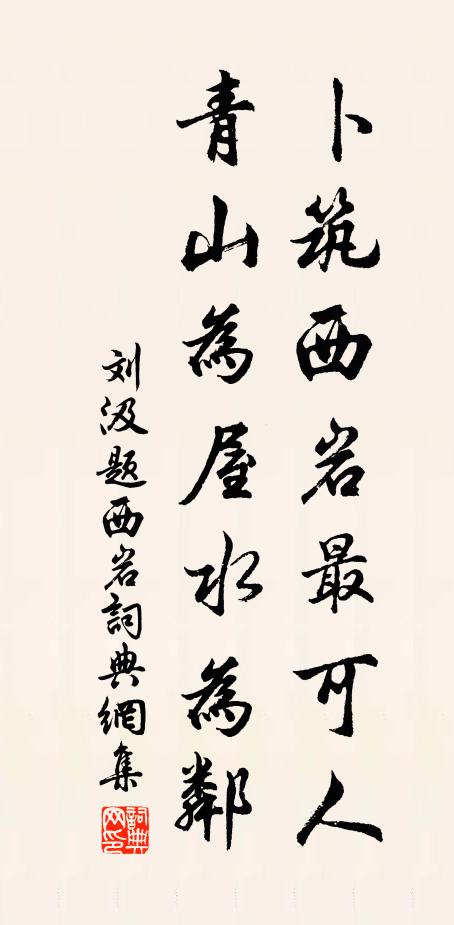 卜筑西岩最可人
青山為屋水為鄰
刘汲题西岩詞典網集
詞典網印